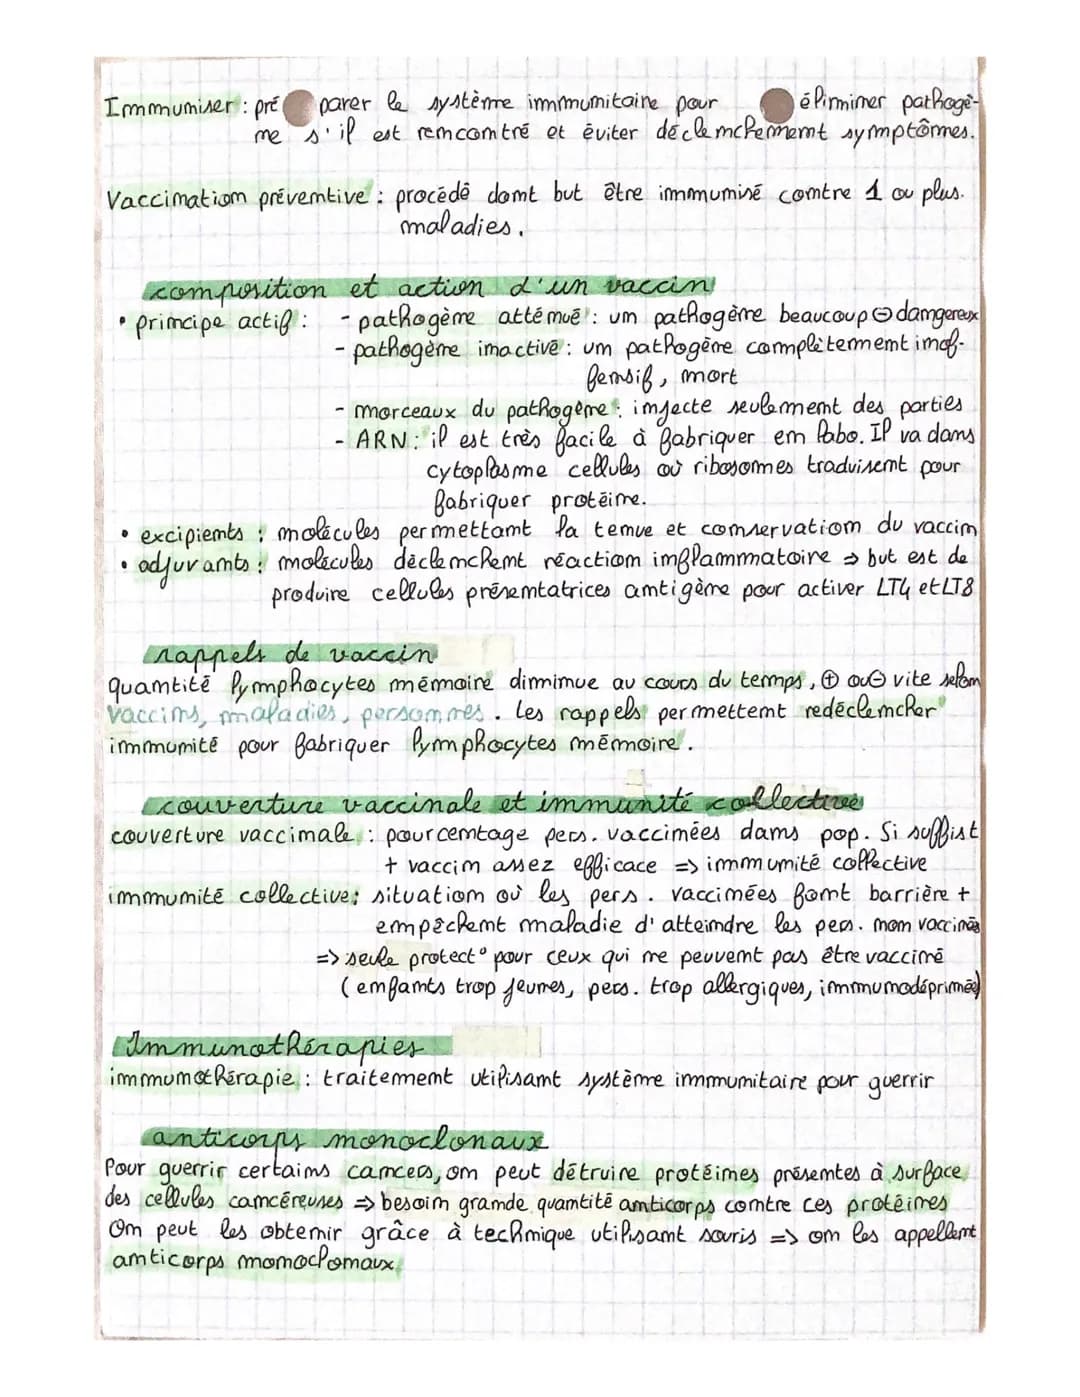 Immuniser : pré parer le système immunitaire pour éliminer pathogè-
me s'il est rencontré et éviter déclenchement symptômes.
Vaccination préventive : procédé dont but être immunisé contre 1 ou plus.
maladies.
composition et action d'un vaccin
• principe actif : - pathogène atténué : un pathogène beaucoup ⊖ dangereux
- pathogène inactivé : un pathogène complètement inof-
fensif, mort
- morceaux du pathogène : injecte seulement des parties
- ARN : il est très facile à fabriquer en labo. Il va dans
cytoplasme cellules où ribosomes traduisent pour
fabriquer protéine.
• excipients : molécules permettant la tenue et conservation du vaccin
• adjuvants : molécules déclenchent réaction inflammatoire ⇒ but est de
produire cellules présentatrices antigène pour activer LT4 et LT8
rappels de vaccin
quantité lymphocytes mémoire diminue au cours du temps, ⊕ ou ⊖ vite selon
vaccins, maladies, personnes. Les rappels permettent redéclencher
immunité pour fabriquer lymphocytes mémoire.
couverture vaccinale et immunité collective
couverture vaccinale : pourcentage pers. vaccinées dans pop. Si suffist
+ vaccin assez efficace => immunité collective
immunité collective : situation où les pers. vaccinées font barrière +
empêchent maladie d'atteindre les pers. non vaccinées
=> seule protect° pour ceux qui ne peuvent pas être vacciné
(enfants trop jeunes, pers. trop allergiques, immunodéprimée)
Immunothérapies
immunothérapie : traitement utilisant système immunitaire pour guerrir
anticorps monoclonaux
Pour guerrir certains cancers, on peut détruire protéines présentes à surface
des cellules cancéreuses ⇒ besoin grande quantité anticorps contre ces protéines
On peut les obtenir grâce à technique utilisant souris => on les appellent
anticorps monoclonaux